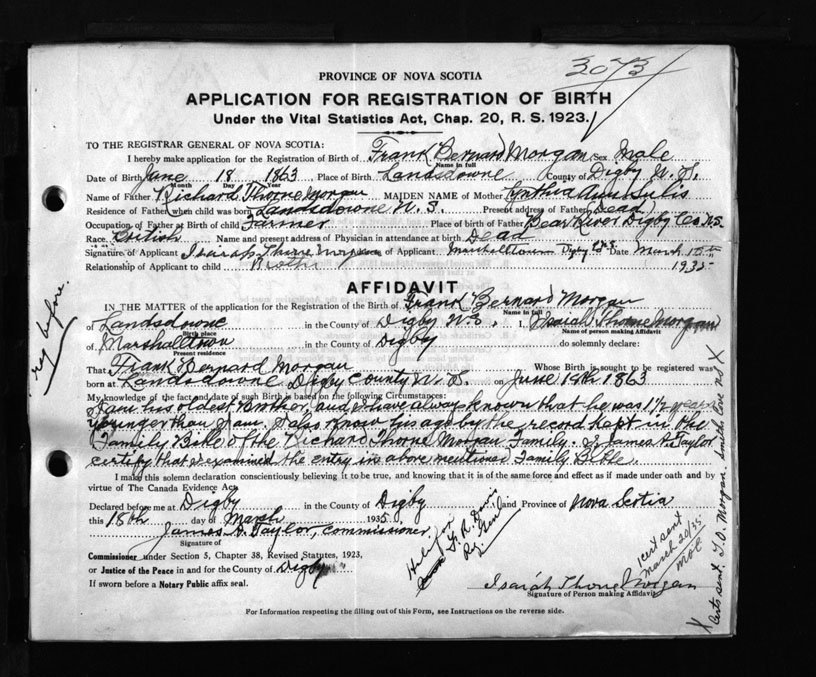 3073
PROVINCE OF NOVA SCOTIA
APPLICATION FOR REGISTRATION OF BIRTH
Under the Vital Statistics Act, Chap. 20, R. S. 1923.
TO THE REGISTRAR GENERAL OF NOVA SCOTIA:
I hereby make application for the Registration of Birth of Frank Bernard Morgan Sex Male
Name in full
Date of Birth June 18 1863 Place of Birth Landsdowne County of Digby N. S.
Month Day Year
Name of Father Richard Thorne Morgan MAIDEN NAME of Mother Cynthia Ann Sulis
Residence of Father when child was born Landsdowne N. S. Present address of Father Dead
Occupation of Father at Birth of child Farmer Place of birth of Father Bear River Digby Co N.S.
Race British Name and present address of Physician in attendance at birth Dead
Signature of Applicant Isaiah Thorne Morgan of Applicant Marshalltown Digby Co N.S. Date March 18th
Relationship of Applicant to child Brother 1935
AFFIDAVIT
IN THE MATTER of the application for the Registration of the Birth of Frank Bernard Morgan
Name in full
of Landsdowne in the County of Digby N.S. I, Isaiah Thorne Morgan
Birth place Name of person making Affidavit
of Marshalltown in the County of Digby do solemnly declare:
Present residence
That Frank Bernard Morgan Whose Birth is sought to be registered was
born at Landsdowne Digby County N. S. on June 18th 1863
My knowledge of the fact and date of such Birth is based on the following Circumstances:
I am his oldest Brother, and I have always known that he was 1½ years
younger than I am. I also know his age by the record kept in the
Family Bible of the Richard Thorne Morgan Family. I James A. Taylor
certify that I examined the entry in above mentioned Family Bible.
I make this solemn declaration conscientiously believing it to be true, and knowing that it is of the same force and effect as if made under oath and by
virtue of The Canada Evidence Act.
Declared before me at Digby in the County of Digby and Province of Nova Scotia
this 18th day of March 1935
James A. Taylor, Commissioner,
Signature of
Commissioner under Section 5, Chapter 38, Revised Statutes, 1923,
or Justice of the Peace in and for the County of Digby
If sworn before a Notary Public affix seal.
Isaiah Thorne Morgan
Signature of Person making Affidavit
For Information respecting the filling out of this Form, see Instructions on the reverse side.
reg before.
1 cert sent
March 20/35
X Certs sent. T.O. Morgan. Smiths Cove NS X